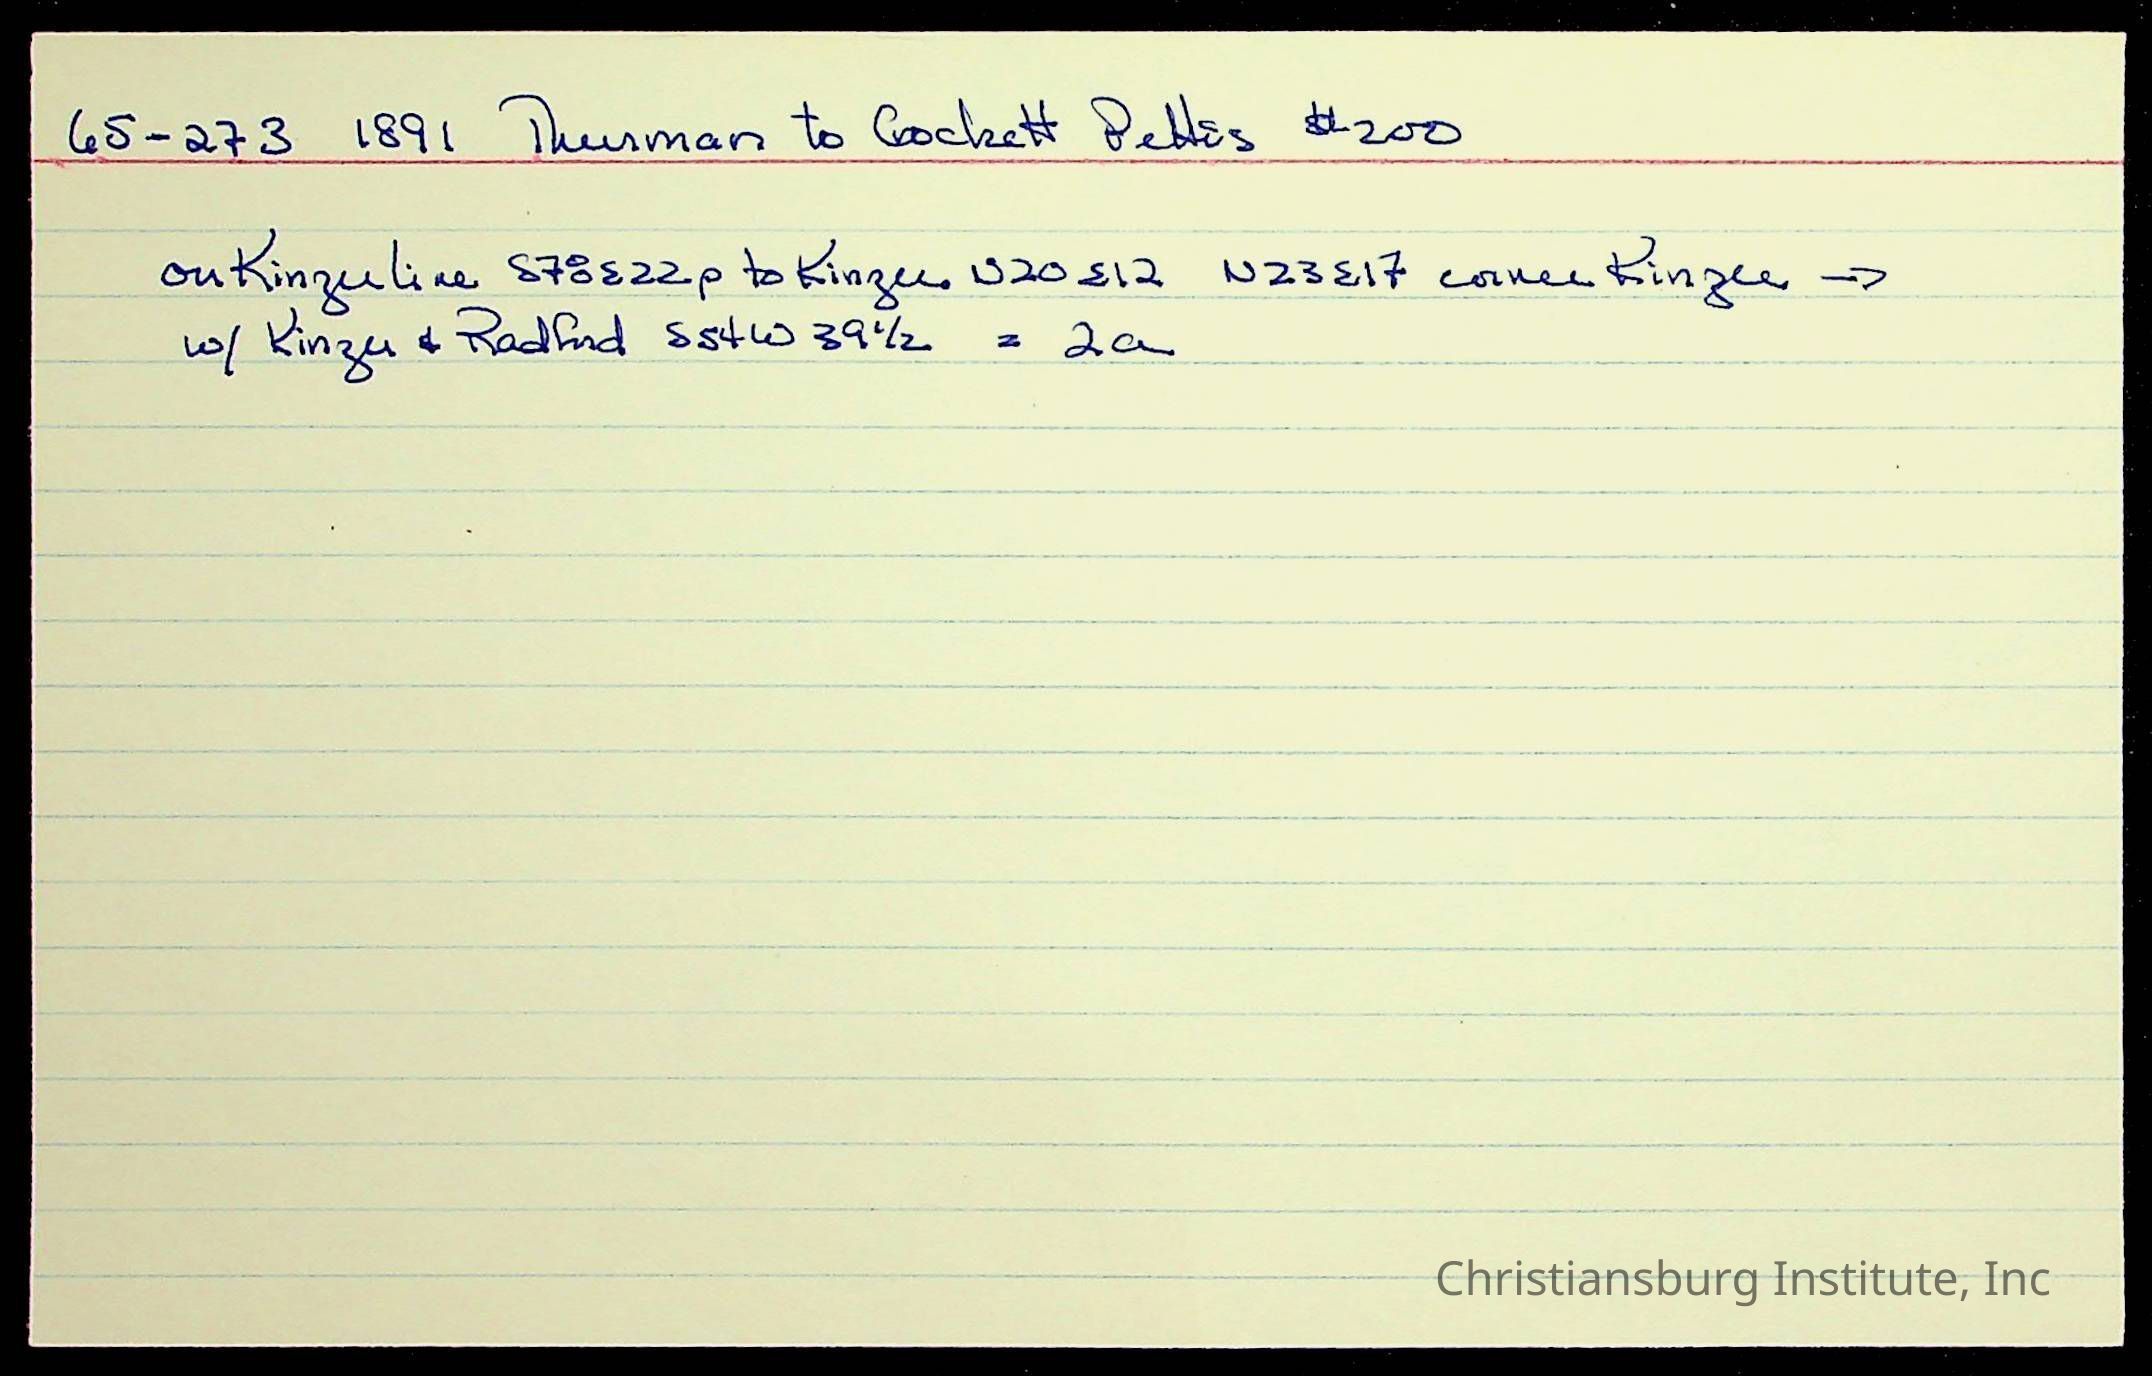 65-273 1891 Thurman to Crockett Pettis $200
on Kinzer line S78E22p to Kinzer N20E12 N23E17 corner Kinzer →
w/ Kinzer & Radford S54W 39 1/2 = 2a
Christiansburg Institute, Inc